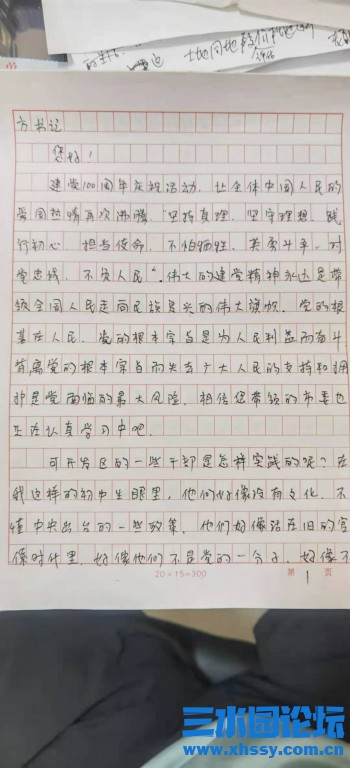 方书记
您好！
建党100周年庆祝活动，让全体中国人民的
爱国热情再次沸腾"坚持真理，坚守理想，践
行初心，担当使命，不怕牺牲，英勇斗争，对
党忠诚，不负人民"。伟大的建党精神永远是带
领全国人民走向民族复兴的伟大旗帜。党的根
基在人民，党的根本宗旨是为人民利益而奋斗
背离党的根本宗旨而失去广大人民的支持和拥
护是党面临的最大风险。相信您带领的市委也
正在认真学习中吧。
可开发区的一些干部是怎样实践的呢？在
我这样的初中生眼里，他们好像没有文化，不
懂中央出台的一些政策，他们好像活在旧的官
僚时代里，好像他们不是党的一分子，好像不
20×15=300
第1页
三水园论坛
www.xhssy.com.cn